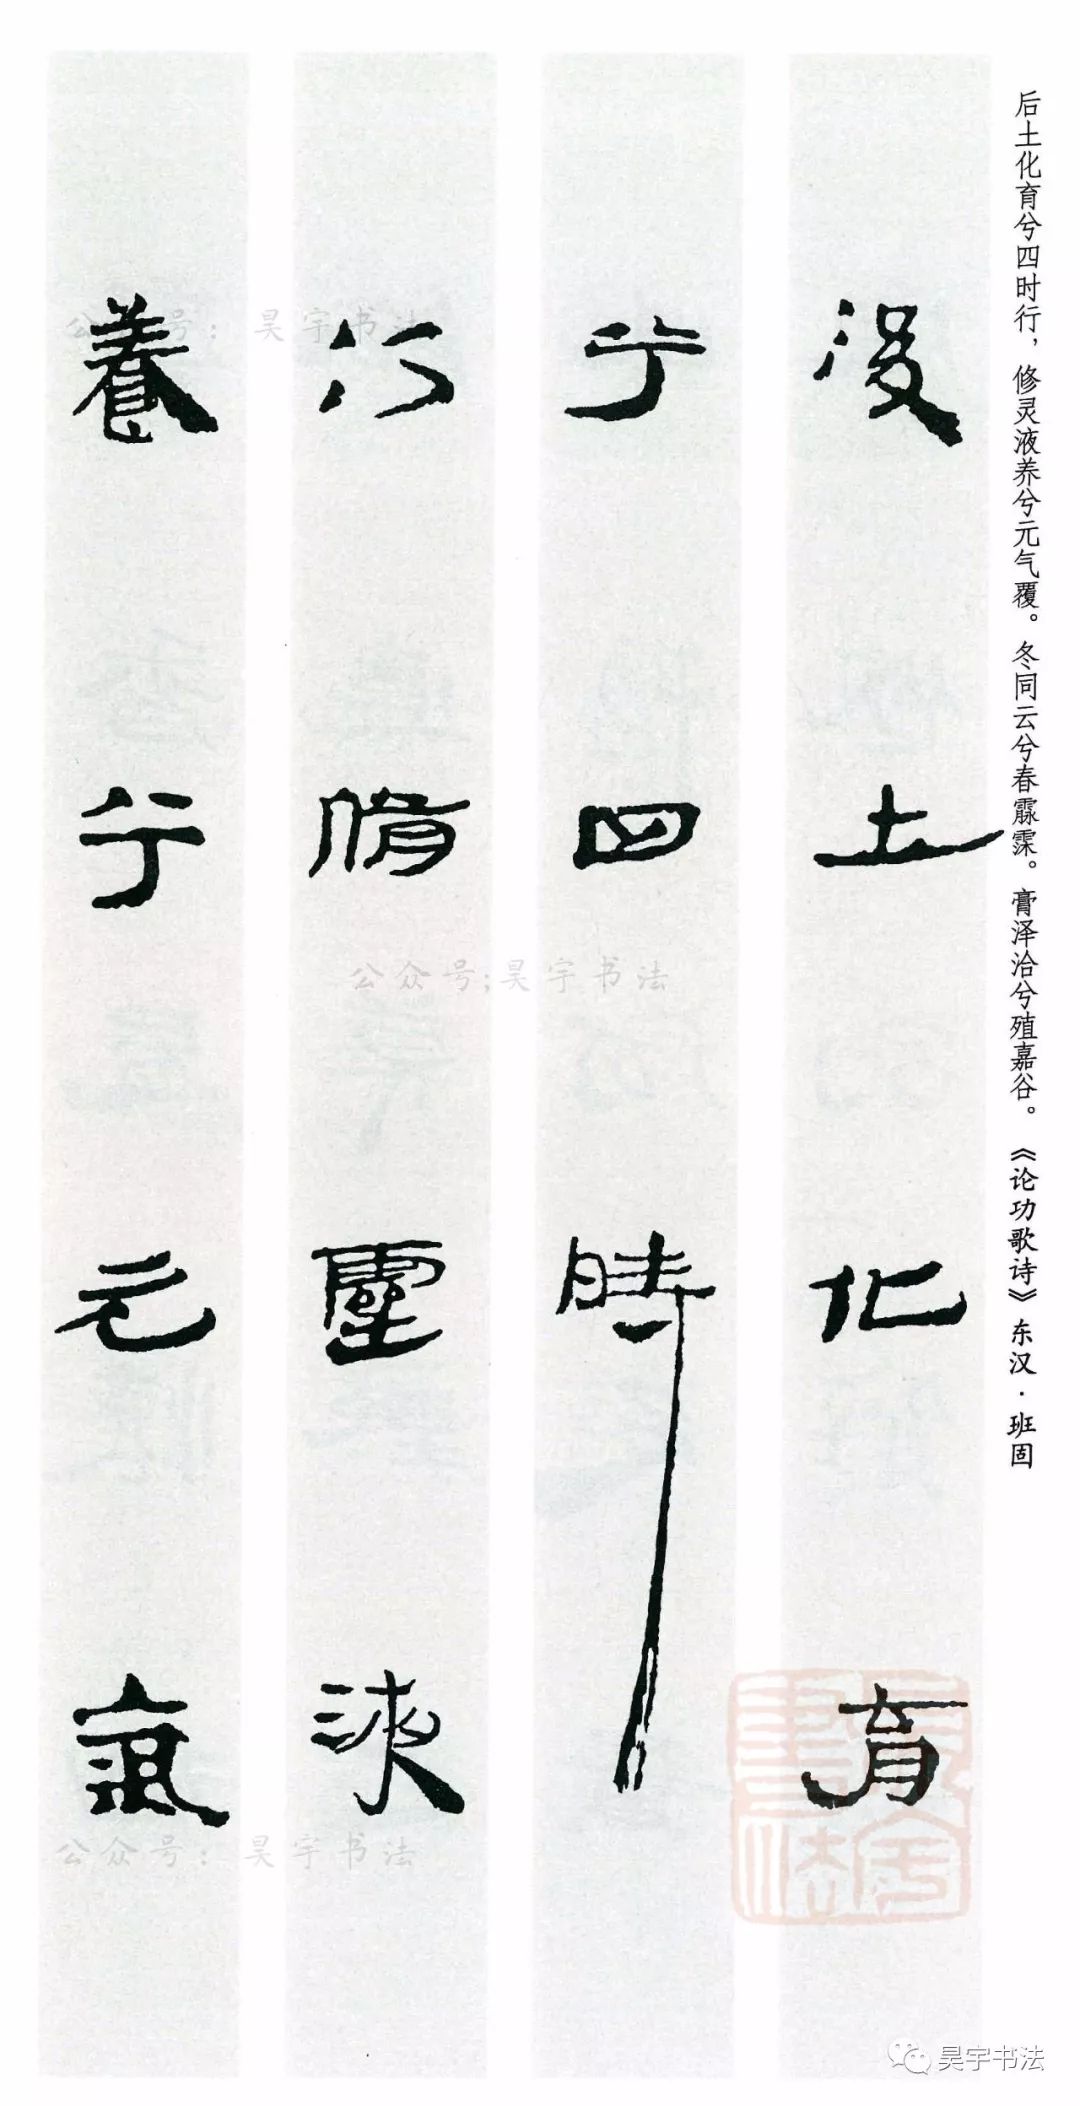 后土化育兮四时行，修灵液养兮元气覆。冬同云兮春霡霂。膏泽洽兮殖嘉谷。《论功歌诗》东汉·班固
後土化育
兮四時
行脩靈液
養兮元氣
公众号：昊宇书法
公众号;昊宇书法
公众号：昊宇书法
昊宇书法